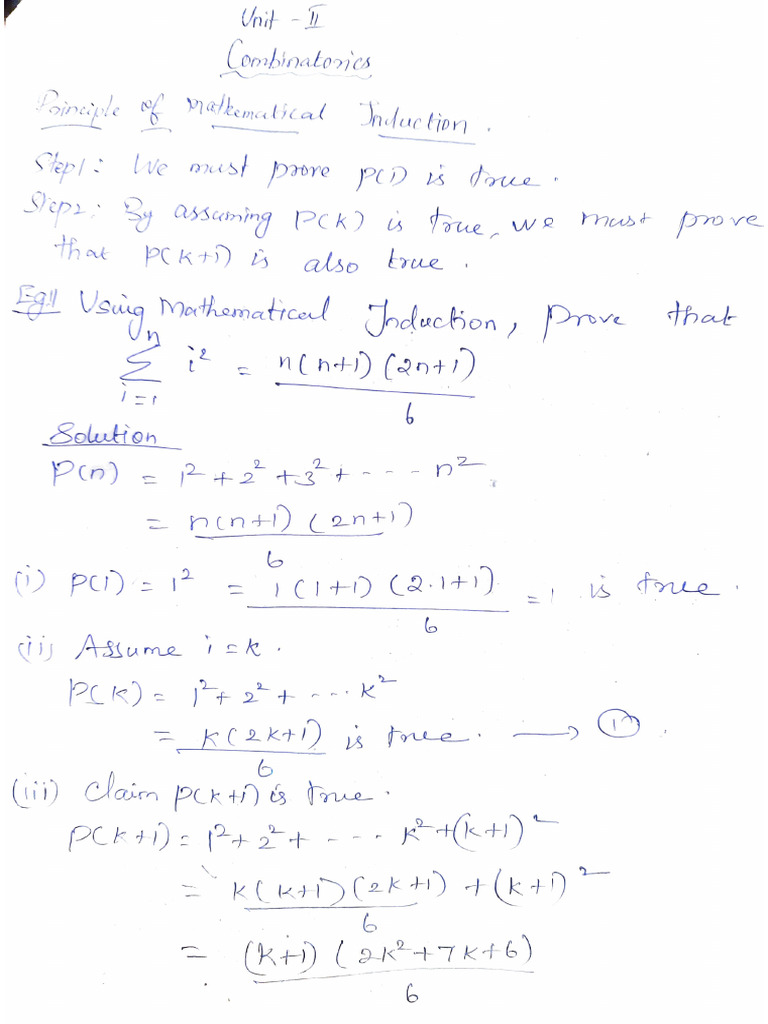 Unit - II
Combinatorics
Principle of Mathematical Induction.
Step1: We must prove P(1) is true.
Step2: By assuming P(k) is true, we must prove
that P(k+1) is also true.
Eg:1 Using Mathematical Induction, prove that
n
∑ i² = n(n+1)(2n+1)
i=1 6
Solution
P(n) = 1² + 2² + 3² + - - - n²
= n(n+1)(2n+1)
6
(i) P(1) = 1² = 1(1+1)(2·1+1) = 1 is true.
6
(ii) Assume i=k.
P(k) = 1² + 2² + ---- k²
= k(2k+1) is true. → ①.
6
(iii) Claim P(k+1) is true.
P(k+1) = 1² + 2² + - - - - k² + (k+1)²
= k(k+1)(2k+1) + (k+1)²
6
= (k+1)(2k²+7k+6)
6